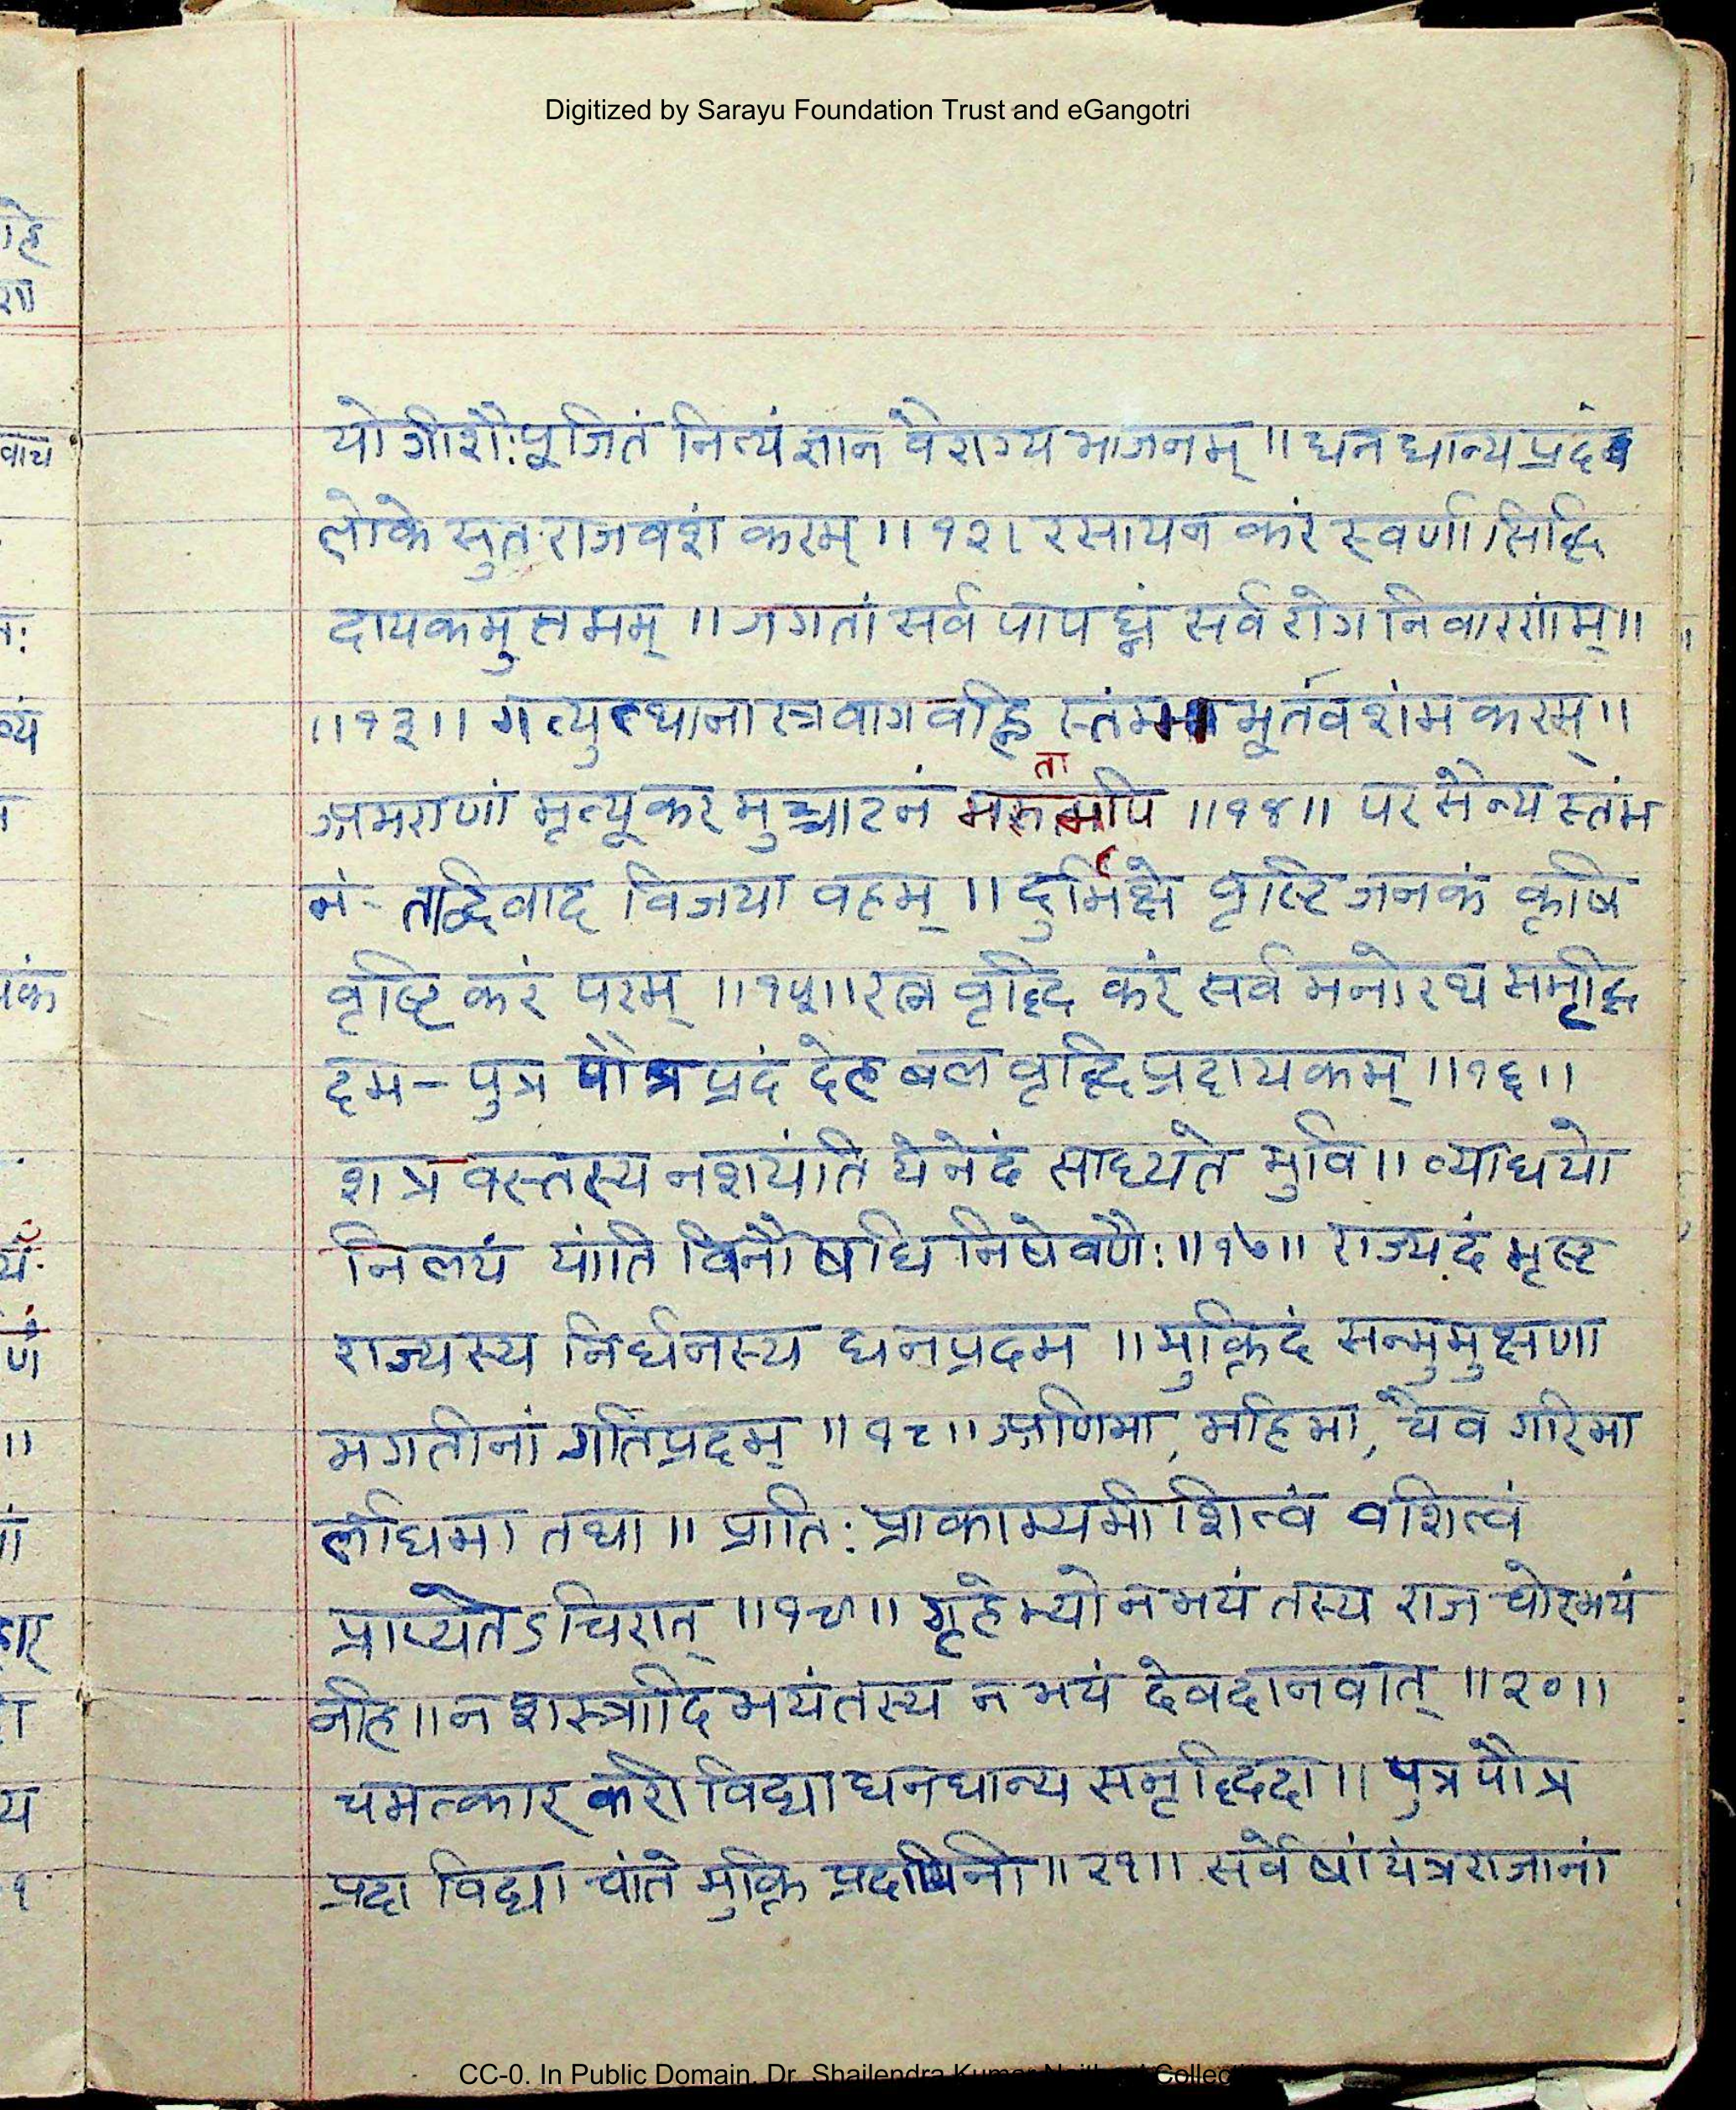 Digitized by Sarayu Foundation Trust and eGangotri
योगीशैः पूजितं नित्यं ज्ञान वैराग्य भाजनम् ॥ धन धान्य प्रदं
लोके सुत राज वशं करम् ॥ १२। रसायन करं स्वर्ण सिद्धि
दायकमुत्तमम् ॥ जगतां सर्व पापघ्नं सर्व रोग निवारणंम् ॥
॥१३॥ गत्युत्थानास्त्रवागवह्नि मूर्तवशंम करम् ॥
अमराणां मृत्यूकर मुच्चाटनं मरुतामपि ॥१४॥ पर सैन्य स्तंभ
नं - तद्विवाद विजया वहम् ॥ दुर्भिक्षे वृष्टि जनकं कृषि
वृष्टि करं परम् ॥१५॥ रत्न वृद्धि करं सर्व मनोरथ समृद्धि
दम - पुत्र पौत्र प्रदं देह बल वृद्धि प्रदायकम् ॥१६॥
शत्रवस्तस्य नशयंति येनेदं साध्यते भुवि ॥ व्याधयो
निलयं यांति विनौषधि निषेवणैः ॥१७॥ राज्यदं भृष्ट
राज्यस्य निर्धनस्य धनप्रदम ॥ मुक्तिदं सन्मुमुक्षणा
मगतीनां गतिप्रदम् ॥१८॥ अणिमा, महिमा, चैव गरिमा
लघिमा तथा ॥ प्राति: प्राकाम्यमीशित्वं वशित्वं
प्राप्यतेऽचिरात् ॥१९॥ गृहेभ्यो नभयं तस्य राज चोरभयं
नहि ॥ न शस्त्रादि भयंतस्य न भयं देवदानवात् ॥२०॥
चमत्कार करी विद्या धनधान्य समृद्धिदा ॥ पुत्र पौत्र
प्रदा विद्या चांते मुक्ति प्रदायिनी ॥२१॥ सर्वेषां यंत्रराजानां
CC-0. In Public Domain. Dr. Shailendra Kumar